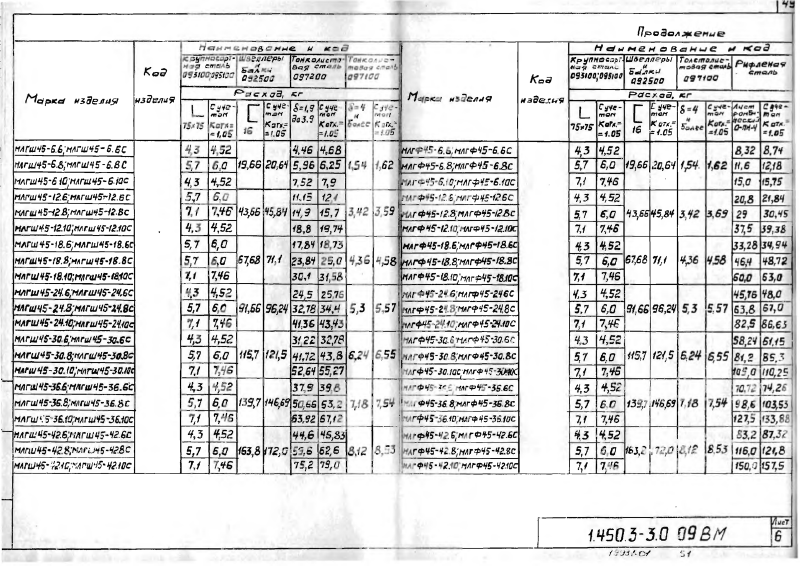 49
Продолжение
Наименование и код
Марка изделия
Код изделия
Крупносортная сталь 093100;095100
Швеллеры и балки 092500
Тонколистовая сталь 097200
Толстолистовая сталь 097100
Расход, кг
L 75×75 | С учетом Котх.=1.05 | [ 16 | С учетом Котх.=1.05 | δ=1,9 до 3.9 | С учетом Котх.=1.05 | δ=4 и более | С учетом Котх.=1.05
МЛГШ45-6.6; МЛГШ45-6.6С 4,3 4,52 4,46 4,68
МЛГШ45-6.8; МЛГШ45-6.8С 5,7 6,0 19,66 20,64 5,96 6,25 1,54 1,62
МЛГШ45-6.10; МЛГШ45-6.10С 4,3 4,52 7,52 7,9
МЛГШ45-12.6; МЛГШ45-12.6С 5,7 6,0 11.15 12,1
МЛГШ45-12.8; МЛГШ45-12.8С 7,1 7,46 43,66 45,84 14,9 15,7 3,42 3,59
МЛГШ45-12.10; МЛГШ45-12.10С 4,3 4,52 18,8 19,74
МЛГШ45-18.6; МЛГШ45-18.6С 5,7 6,0 17,84 18,73
МЛГШ45-18.8; МЛГШ45-18.8С 5,7 6,0 67,68 71,1 23,84 25,0 4,36 4,58
МЛГШ45-18.10; МЛГШ45-18.10С 7,1 7,46 30.1 31,58
МЛГШ45-24.6; МЛГШ45-24.6С 4,3 4,52 24,5 25,76
МЛГШ45-24.8; МЛГШ45-24.8С 5,7 6,0 91,66 96,24 32,78 34,4 5,3 5,57
МЛГШ45-24.10; МЛГШ45-24.10С 7,1 7,46 41,36 43,43
МЛГШ45-30.6; МЛГШ45-30.6С 4,3 4,52 31,22 32,78
МЛГШ45-30.8; МЛГШ45-30.8С 5,7 6,0 115,7 121,5 41,72 43,8 6,24 6,55
МЛГШ45-30.10; МЛГШ45-30.10С 7,1 7,46 52,64 55,27
МЛГШ45-36.6; МЛГШ45-36.6С 4,3 4,52 37,9 39,8
МЛГШ45-36.8; МЛГШ45-36.8С 5,7 6,0 139,7 146,69 50,66 53,2 7,18 7,54
МЛГШ45-36.10; МЛГШ45-36.10С 7,1 7,46 63,92 67,12
МЛГШ45-42.6; МЛГШ45-42.6С 4,3 4,52 44,6 46,83
МЛГШ45-42.8; МЛГШ45-42.8С 5,7 6,0 163,8 172,0 59,6 62,6 8,12 8,53
МЛГШ45-42.10; МЛГШ45-42.10С 7,1 7,46 75,2 79,0
Наименование и код
Марка изделия
Код изделия
Крупносортная сталь 093100;095100
Швеллеры и балки 092500
Толстолистовая сталь 097100
Рифленая сталь
Расход, кг
L 75×75 | С учетом Котх.=1.05 | [ 16 | С учетом Котх.=1.05 | δ=4 и более | С учетом Котх.=1.05 | Лист ромбический О-ПН-4 | С учетом Котх.=1.05
МЛГФ45-6.6; МЛГФ45-6.6С 4,3 4,52 8,32 8,74
МЛГФ45-6.8; МЛГФ45-6.8С 5,7 6,0 19,66 20,64 1,54 1,62 11,6 12,18
МЛГФ45-6.10; МЛГФ45-6.10С 7,1 7,46 15,0 15,75
МЛГФ45-12.6; МЛГФ45-12.6С 4,3 4,52 20,8 21,84
МЛГФ45-12.8; МЛГФ45-12.8С 5,7 6,0 43,66 45,84 3,42 3,69 29 30,45
МЛГФ45-12.10; МЛГФ45-12.10С 7,1 7,46 37,5 39,38
МЛГФ45-18.6; МЛГФ45-18.6С 4,3 4,52 33,28 34,94
МЛГФ45-18.8; МЛГФ45-18.8С 5,7 6,0 67,68 71,1 4,36 4,58 46,4 48,72
МЛГФ45-18.10; МЛГФ45-18.10С 7,1 7,46 60,0 63,0
МЛГФ45-24.6; МЛГФ45-24.6С 4,3 4,52 45,76 48,0
МЛГФ45-24.8; МЛГФ45-24.8С 5,7 6,0 91,66 96,24 5,3 5,57 63,8 67,0
МЛГФ45-24.10; МЛГФ45-24.10С 7,1 7,46 82,5 86,63
МЛГФ45-30.6; МЛГФ45-30.6С 4,3 4,52 58,24 61,15
МЛГФ45-30.8; МЛГФ45-30.8С 5,7 6,0 115,7 121,5 6,24 6,55 81,2 85,3
МЛГФ45-30.10С; МЛГФ45-30.10С 7,1 7,46 105,0 110,25
МЛГФ45-36.6; МЛГФ45-36.6С 4,3 4,52 70,72 74,26
МЛГФ45-36.8; МЛГФ45-36.8С 5,7 6,0 139,7 146,69 7,18 7,54 98,6 103,53
МЛГФ45-36.10; МЛГФ45-36.10С 7,1 7,46 127,5 133,88
МЛГФ45-42.6; МЛГФ45-42.6С 4,3 4,52 83,2 87,32
МЛГФ45-42.8; МЛГФ45-42.8С 5,7 6,0 163,2 172,0 8,12 8,53 116,0 121,8
МЛГФ45-42.10; МЛГФ45-42.10С 7,1 7,46 150,0 157,5
1.450.3-3.0 09ВМ
Лист
6
51